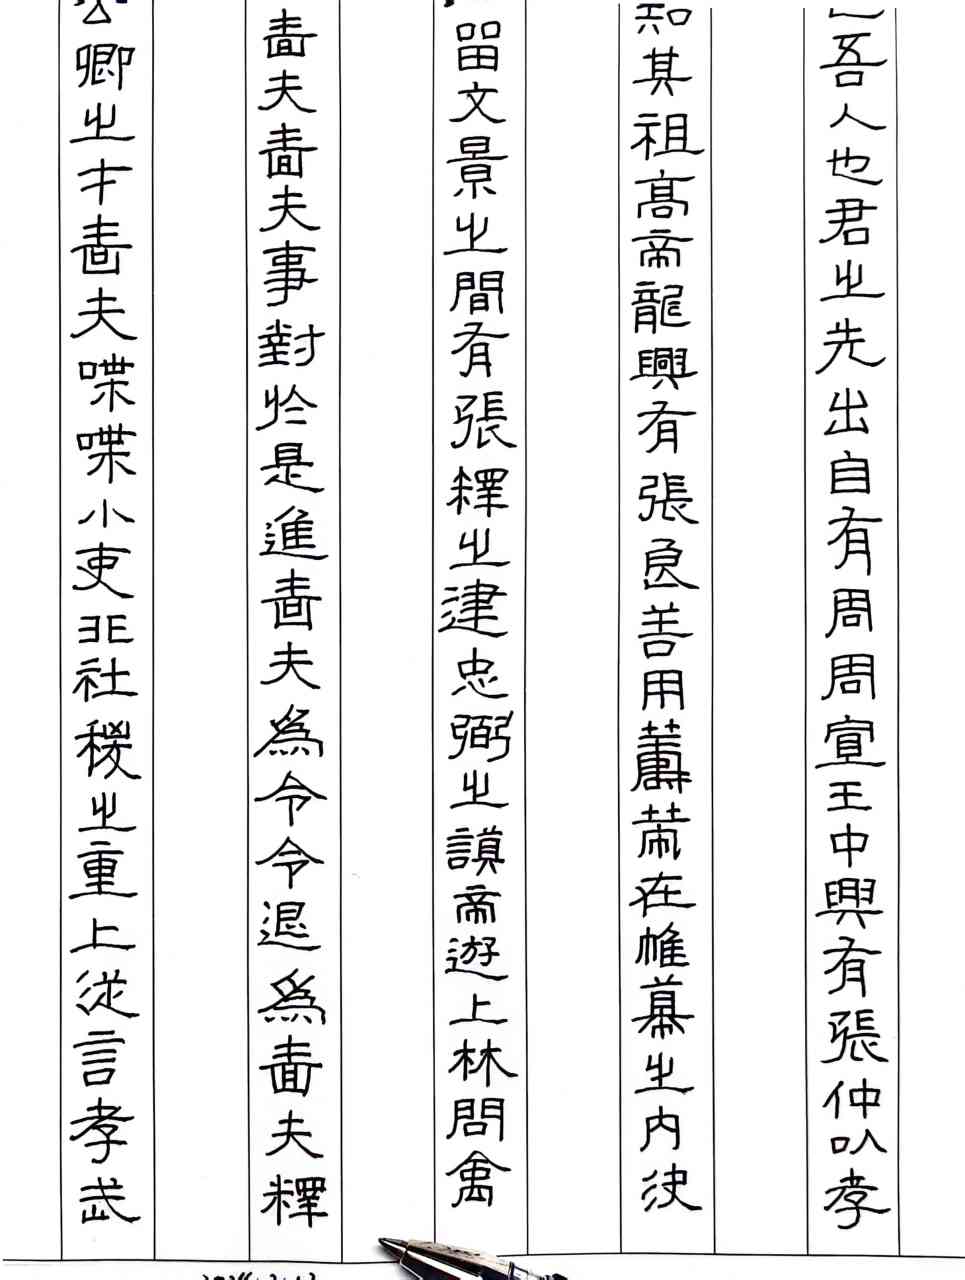 吾人也君之先出自有周周宣王中興有張仲以孝
知其祖高帝龍興有張良善用籌策在帷幕之内決
留文景之間有張釋之建忠弼之謨帝遊上林問禽
嗇夫嗇夫事對於是進嗇夫為令令退為嗇夫釋
公卿之才嗇夫喋喋小吏非社稷之重上從言孝武